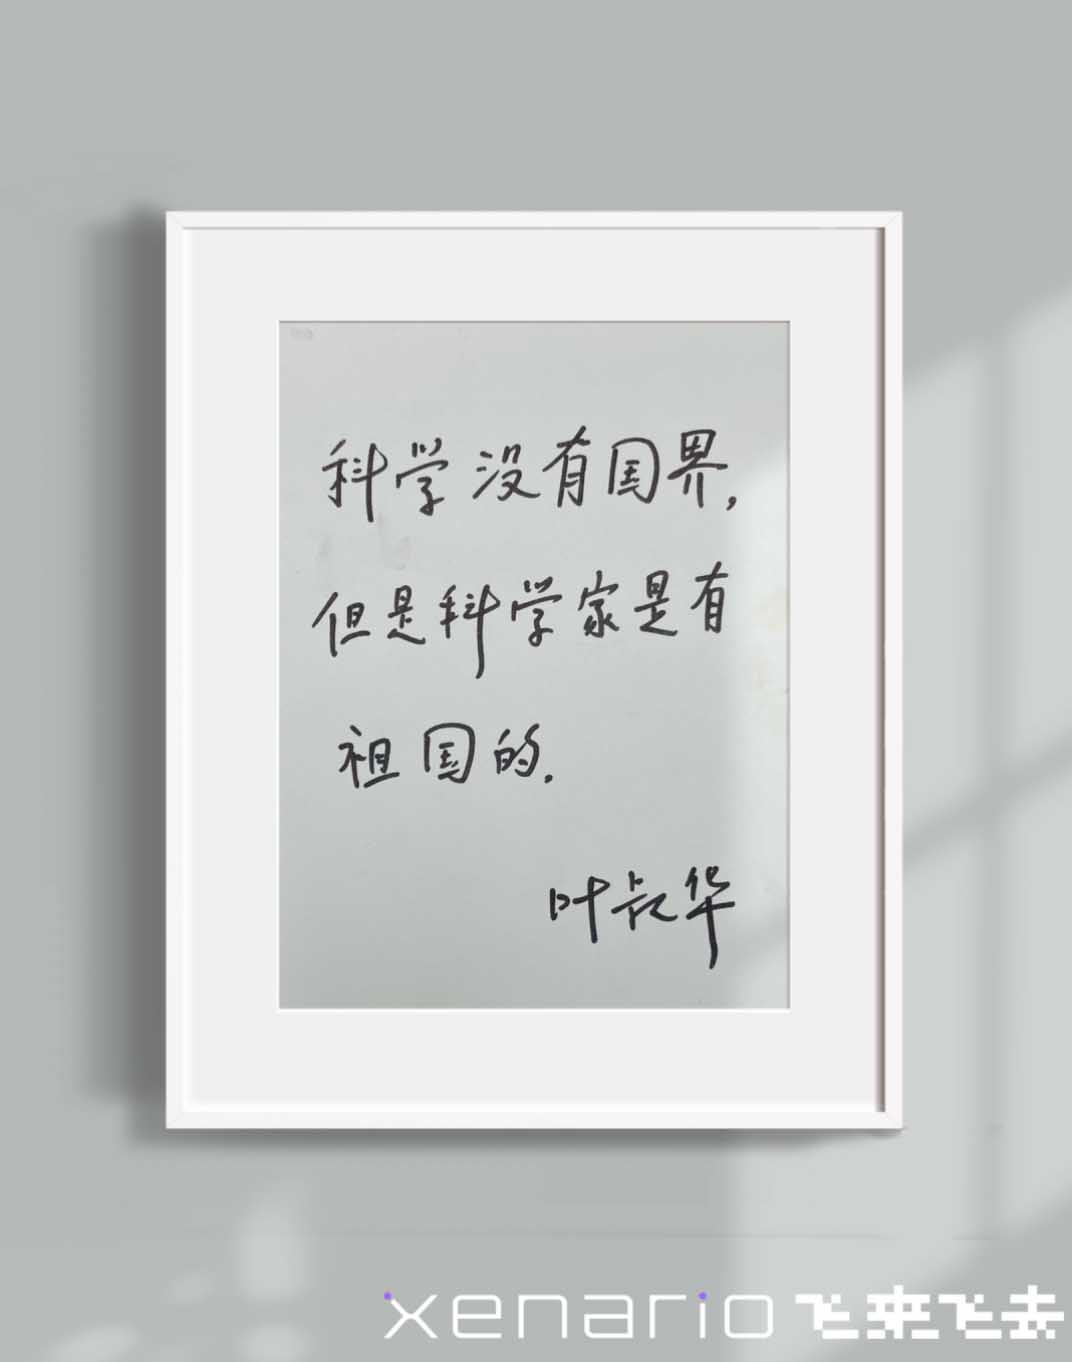 科学没有国界,
但是科学家是有
祖国的.
叶叔华
xenario 飞来飞去